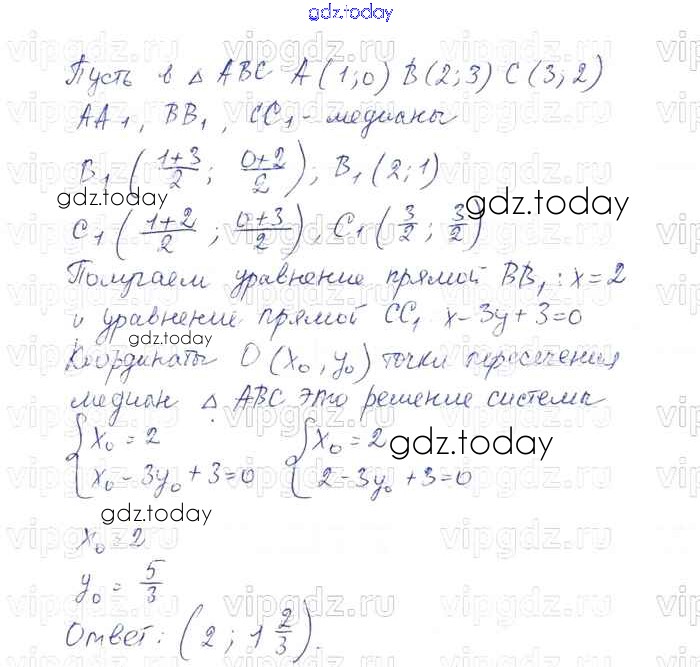 gdz.today
Пусть в △ ABC A(1;0) B(2;3) C(3;2)
AA₁, BB₁, CC₁ - медианы
B₁ (1+3/2 ; 0+2/2); B₁(2;1)
gdz.today gdz.today
C₁ (1+2/2 ; 0+3/2), C₁(3/2 ; 3/2)
Получаем уравнение прямой BB₁: x=2
и уравнение прямой CC₁ x-3y+3=0
gdz.today
Координаты O(x₀, y₀) точки пересечения
медиан △ ABC это решение системы
{x₀ = 2 {x₀ = 2
gdz.today
x₀ - 3y₀ + 3 = 0 2 - 3y₀ + 3 = 0
gdz.today
x₀ = 2
y₀ = 5/3
Ответ: (2 ; 1 2/3).
vipgdz.ru